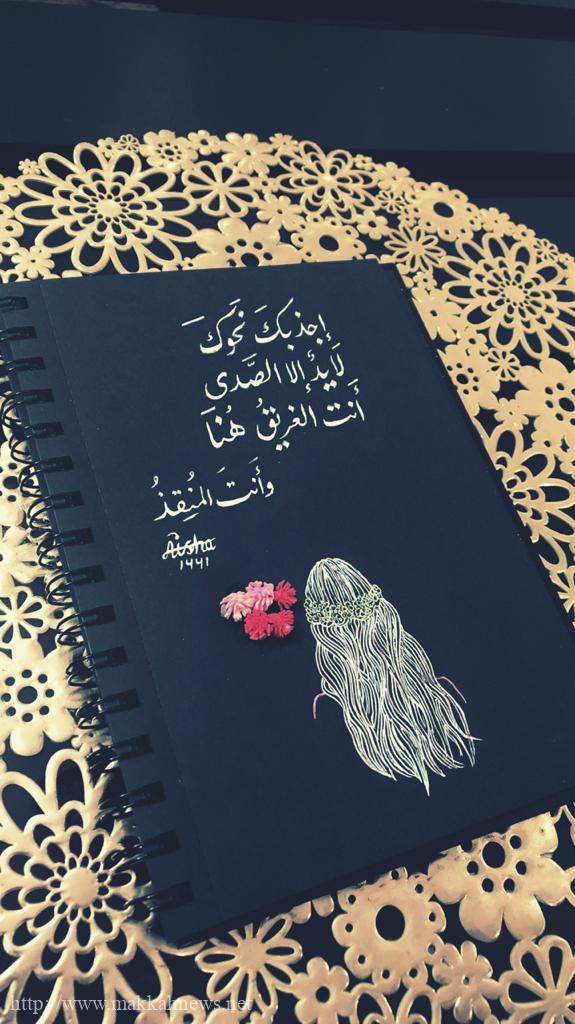 إجذبكَ نَحوكَ
لَا يدَ إلا الصَّدى
أَنت الغريقُ هُنَا
وأَنتَ المنُِقذُ
Aisha
١٤٤١
http://www.makkahnews.net